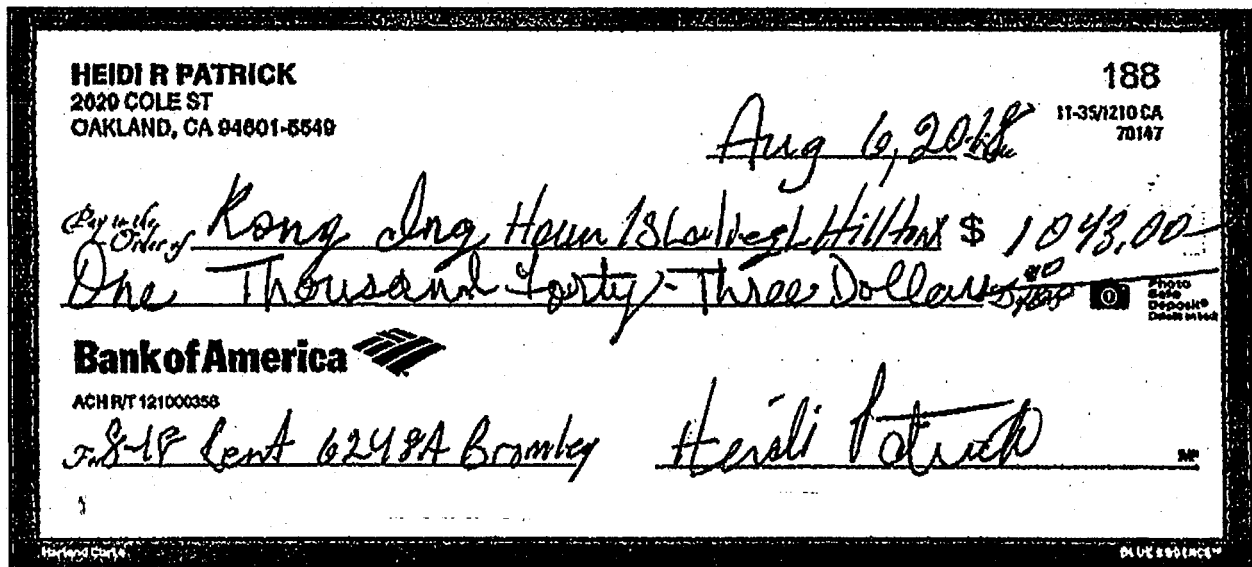 HEIDI R PATRICK
2029 COLE ST
OAKLAND, CA 94601-5549
188
11-35/1210 CA
70147
Aug 6, 2018
Pay to the Order of Kong Ing Houn $ 1043.00
One Thousand Forty-Three Dollars
Photo Safe Deposit® Details on back
Bank of America
ACH R/T 121000358
For 8-18 Rent 6248A Bromley
Heidi Patrick
MP
Harland Clarke